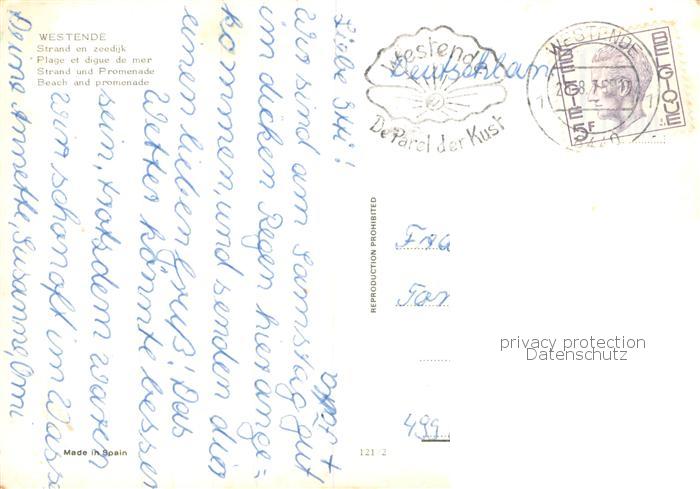 WESTENDE
Strand en zeedijk
Plage et digue de mer
Strand und Promenade
Beach and promenade
Liebe Itti!
wir sind am Samstag gut
im dicken Regen hierange=
kommen, und senden dir
einen lieben Gruß! Das
Wetter könnte besser
sein, trotzdem waren
wir schon oft im Wasse
Deine Annette, Susanne, Omi
+
Made in Spain
121 2
REPRODUCTION PROHIBITED
Westend
De Parel der Kust
WESTENDE
BELGIE
BELGIQUE
5F
Deutschlan
Fra
For
499
privacy protection
Datenschutz